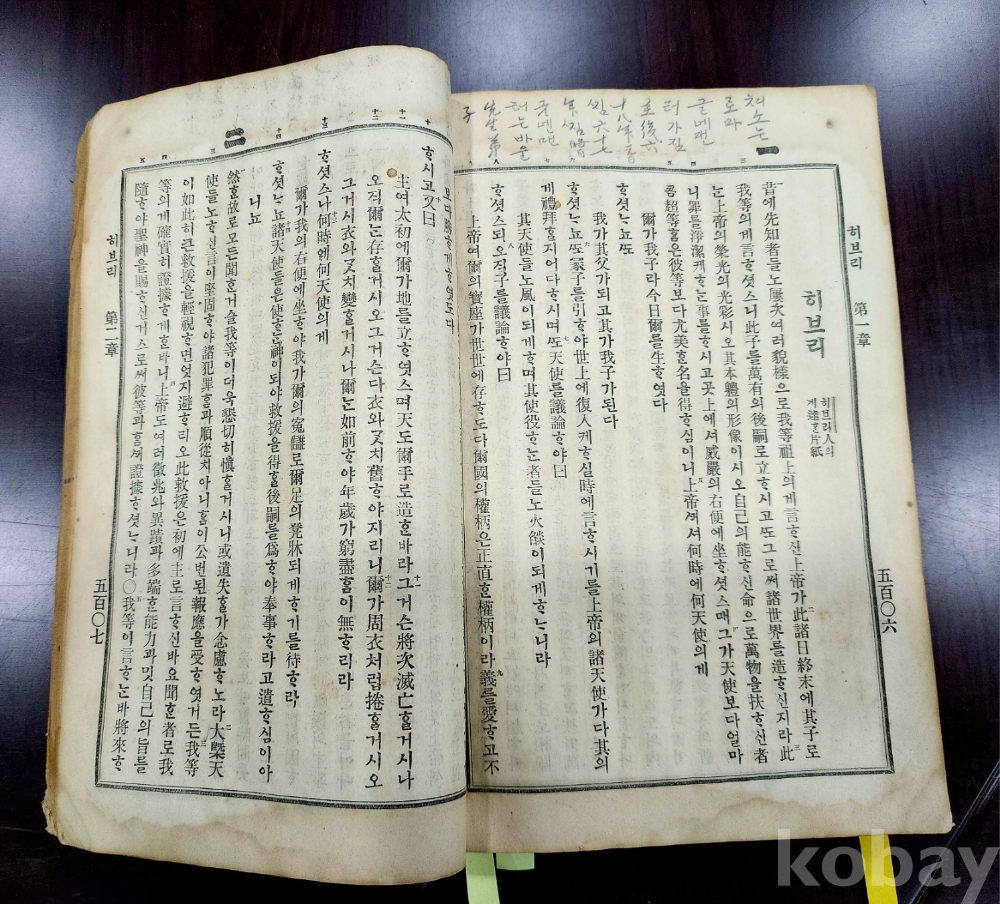 히브리 第一章 五百〇六
히브리
히브리人의
게達ᄒᆞᆫ片紙
昔에先知者들노屢次여러貌樣으로我等祖上의게言ᄒᆞ신上帝가此諸日終末에其子로
我等의게言ᄒᆞ셧스니此子를萬有의後嗣로立ᄒᆞ시고ᄯᅩ그로써諸世界를造ᄒᆞ신지라此
ᄂᆞᆫ上帝의榮光의光彩시오其本體의形像이시오自己의能ᄒᆞ신命으로萬物을扶ᄒᆞ신者
니罪를淨潔케ᄒᆞᄂᆞᆫ事를ᄒᆞ시고곳上에셔威嚴의右便에坐ᄒᆞ셧스매그가天使보다얼마
콤超等ᄒᆞᆷ은彼等보다尤美ᄒᆞᆫ名을得ᄒᆞ심이니上帝ᄭᅦ셔何時에何天使의게
爾가我子라今日爾를生ᄒᆞ엿다
ᄒᆞ셧ᄂᆞ뇨ᄯᅩ
我가其父가되고其가我子가된다
ᄒᆞ셧ᄂᆞ뇨ᄯᅩ冢子를引ᄒᆞ야世上에復入케ᄒᆞ실時에言ᄒᆞ시기를上帝의諸天使가다其의
게禮拜ᄒᆞᆯ지어다ᄒᆞ시며ᄯᅩ天使를議論ᄒᆞ야曰
其天使들노風이되게ᄒᆞ며其使役ᄒᆞᄂᆞᆫ者들노火燄이되게ᄒᆞᄂᆞ니라
ᄒᆞ셧스되오직子를議論ᄒᆞ야曰
上帝여爾의寶座가世世에存ᄒᆞ도다爾國의權柄은正直ᄒᆞᆫ權柄이라義를愛ᄒᆞ고不
ᄒᆞ시고又曰
主여太初에爾가地를立ᄒᆞ엿스며天도爾手로造ᄒᆞᆫ바라그거슨將次滅亡ᄒᆞᆯ거시나
오직爾ᄂᆞᆫ存ᄒᆞᆯ거시오그거슨다衣와ᄀᆞᆺ치舊ᄒᆞ야지리니爾가周衣처럼捲ᄒᆞᆯ거시오
그거시衣와ᄀᆞᆺ치變ᄒᆞᆯ거시나爾ᄂᆞᆫ如前ᄒᆞ야年歲가窮盡ᄒᆞᆷ이無ᄒᆞ리라
ᄒᆞ셧스나何時엔何天使의게
爾가我의右便에坐ᄒᆞ야我가爾의寃讎로爾足의凳牀되게ᄒᆞ기를待ᄒᆞ라
ᄒᆞ셧ᄂᆞ뇨諸天使들은使ᄒᆞᄂᆞᆫ神이되야救援을得ᄒᆞᆯ後嗣를爲ᄒᆞ야奉事ᄒᆞ라고遣ᄒᆞ심이아
니뇨
二
然ᄒᆞᆫ故로모든聞ᄒᆞᆫ거슬我等이더욱懇切히愼ᄒᆞᆯ거시니或遺失ᄒᆞᆯ가念慮ᄒᆞ노라大槩天
使들노ᄒᆞ신言이堅固ᄒᆞ야諸犯罪ᄒᆞᆷ과順從치아니ᄒᆞᆷ이公번된報應을受ᄒᆞ엿거든我等
이如此히큰救援을輕視ᄒᆞ면엇지避ᄒᆞ리오此救援은初에主로言ᄒᆞ신바요聞ᄒᆞᆫ者로我
等의게確實히證據ᄒᆞ게ᄒᆞᆫ바니上帝도여러徵兆와異蹟과多端ᄒᆞᆫ能力과밋自己의旨를
隨ᄒᆞ야聖神을賜ᄒᆞ신거스로써彼等과ᄒᆞᆷᄭᅴ證據ᄒᆞ셧ᄂᆞ니라〇我等이言ᄒᆞᄂᆞᆫ바將來ᄒᆞ
히브리 第二章 五百〇七
kobay